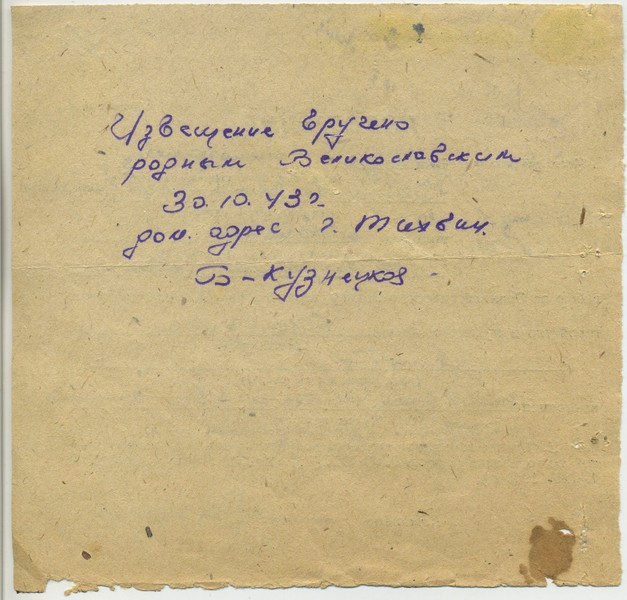 Извещение вручено
родным Великославским
30.10.43г.
дом. адрес г. Тихвин.
Б-Кузнецков